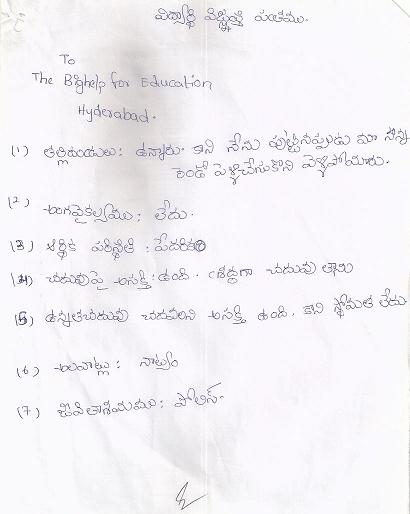 విద్యార్థి విజ్ఞప్తి పత్రము.
To
The Bighelp for Education
Hyderabad.
(1) తల్లిదండ్రులు: ఉన్నారు. కాని నేను పుట్టినప్పుడు మా నాన్న
రెండో పెళ్ళిచేసుకొని వెళ్ళిపోయారు.
(2) అంగవైకల్యము: లేదు.
(3) ఆర్థిక పరిస్థితి: పేదరికం
(4) చదువుపై ఆసక్తి: ఉంది. శ్రద్ధగా చదువు తాను
(5) ఉన్నతచదువు చదవాలని ఆసక్తి ఉంది. కాని స్థోమత లేదు
(6) అలవాట్లు: నాట్యం
(7) జీవితాశయము: పోలీస్.